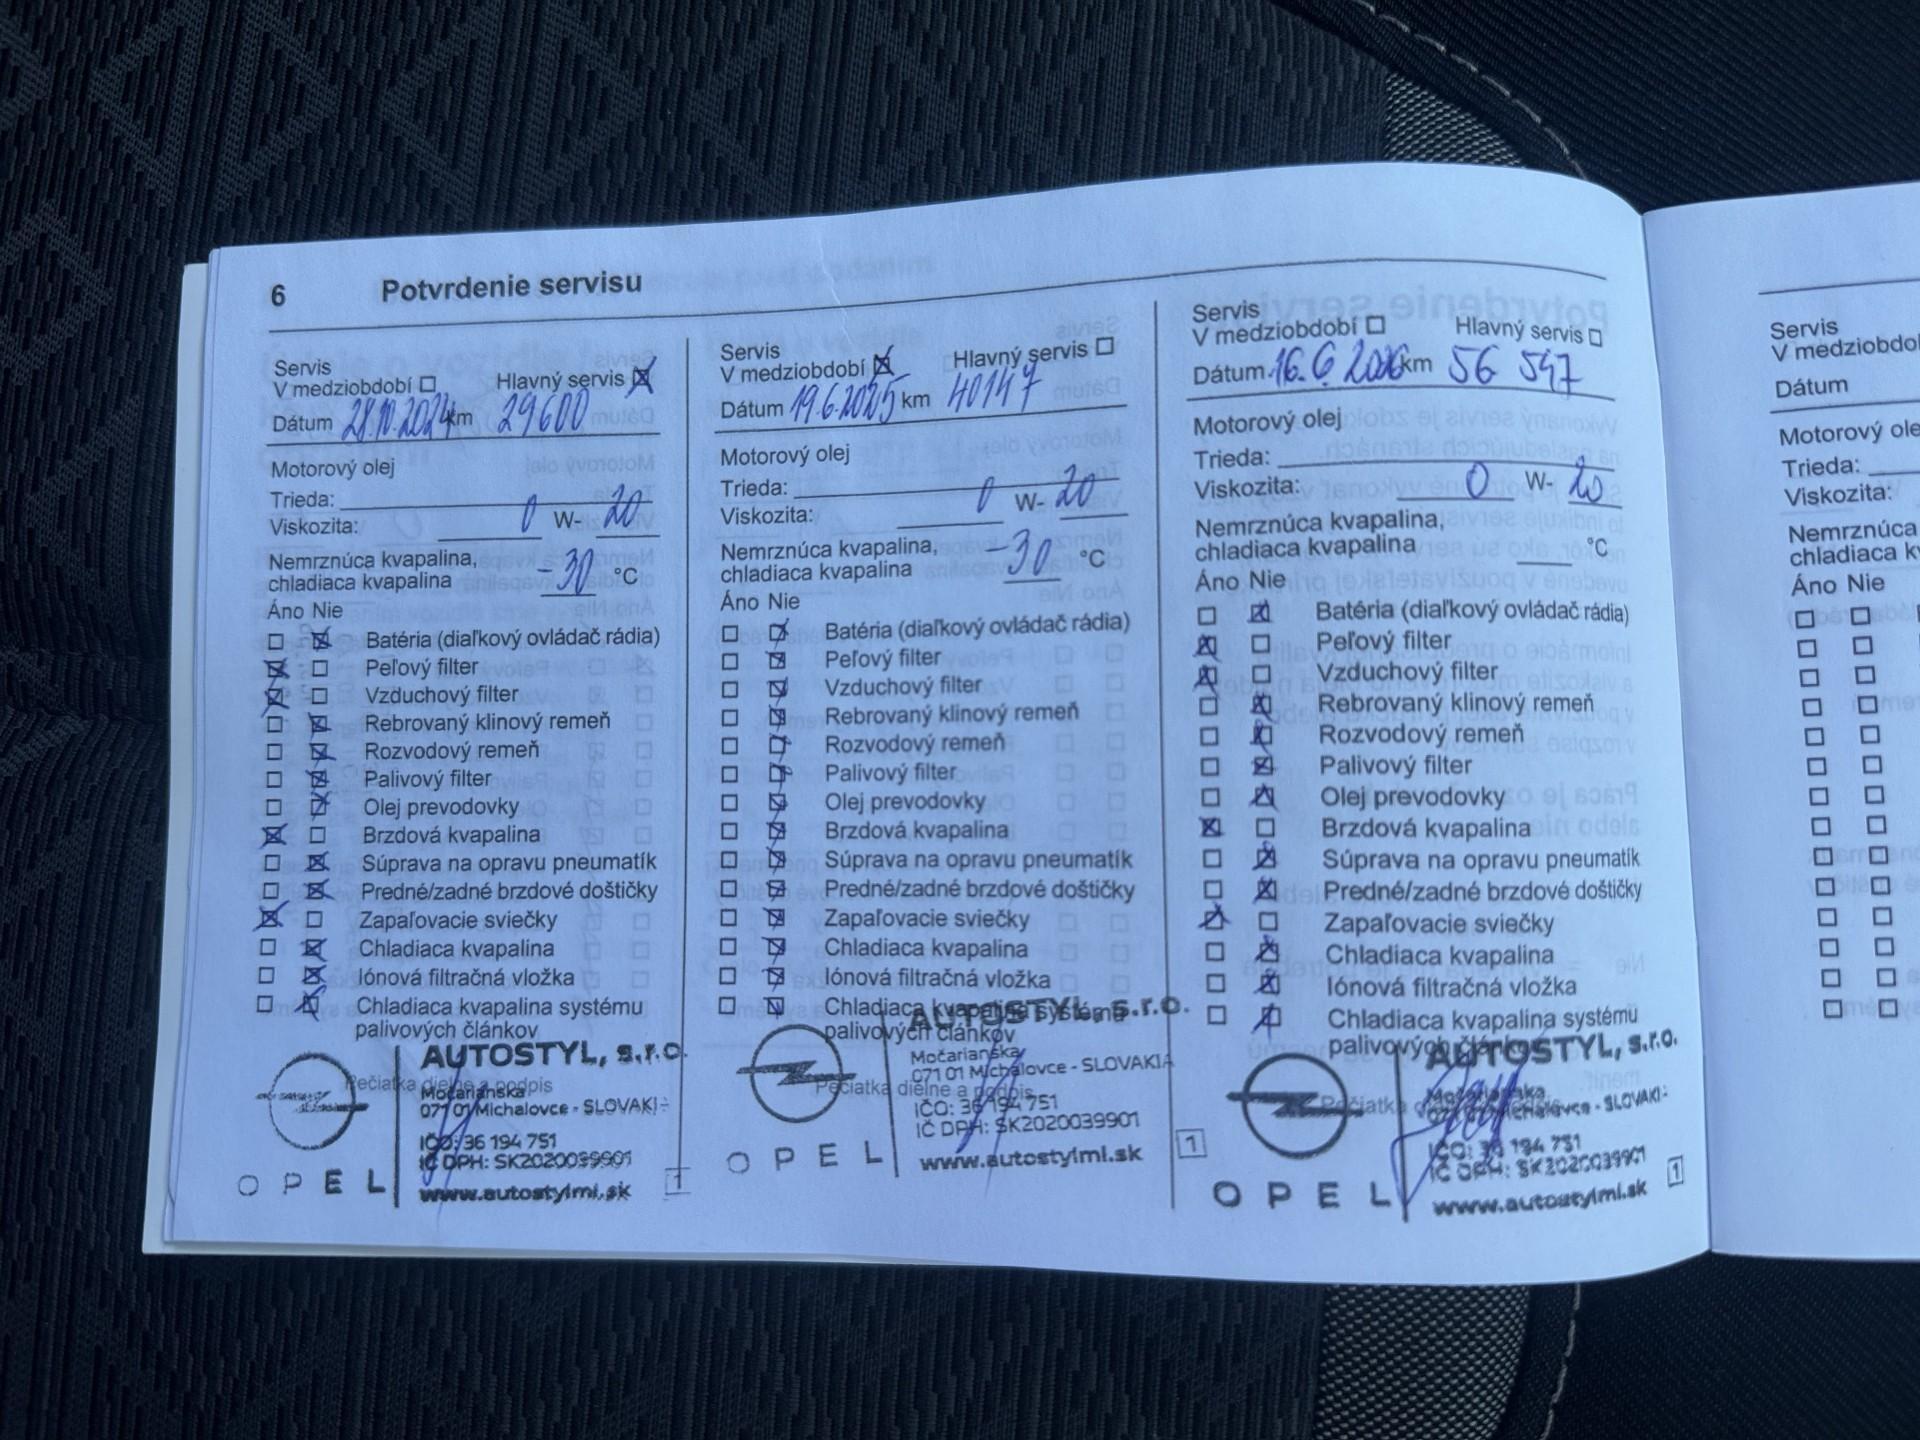 6 Potvrdenie servisu
Servis
V medziobdobí ☐ Hlavný servis ☒
Dátum 28.10.2024 km 29600
Motorový olej
Trieda:
Viskozita: 0 W- 20
Nemrznúca kvapalina,
chladiaca kvapalina -30 °C
Áno Nie
☐ ☒ Batéria (diaľkový ovládač rádia)
☒ ☐ Peľový filter
☒ ☐ Vzduchový filter
☐ ☒ Rebrovaný klinový remeň
☐ ☒ Rozvodový remeň
☐ ☒ Palivový filter
☐ ☒ Olej prevodovky
☒ ☐ Brzdová kvapalina
☐ ☒ Súprava na opravu pneumatík
☐ ☒ Predné/zadné brzdové doštičky
☒ ☐ Zapaľovacie sviečky
☐ ☒ Chladiaca kvapalina
☐ ☒ Iónová filtračná vložka
☐ ☒ Chladiaca kvapalina systému
palivových článkov
Pečiatka dielne a podpis
OPEL
AUTOSTYL, s.r.o.
Močarianska
071 01 Michalovce - SLOVAKI
IČO: 36 194 751
IČ DPH: SK2020039901
www.autostylmi.sk
1
Servis
V medziobdobí ☒ Hlavný servis ☐
Dátum 19.6.2025 km 40147
Motorový olej
Trieda:
Viskozita: 0 W- 20
Nemrznúca kvapalina,
chladiaca kvapalina -30 °C
Áno Nie
☐ ☒ Batéria (diaľkový ovládač rádia)
☐ ☒ Peľový filter
☐ ☒ Vzduchový filter
☐ ☒ Rebrovaný klinový remeň
☐ ☒ Rozvodový remeň
☐ ☒ Palivový filter
☐ ☒ Olej prevodovky
☐ ☒ Brzdová kvapalina
☐ ☒ Súprava na opravu pneumatík
☐ ☒ Predné/zadné brzdové doštičky
☐ ☒ Zapaľovacie sviečky
☐ ☒ Chladiaca kvapalina
☐ ☒ Iónová filtračná vložka
☐ ☒ Chladiaca kvapalina systému
palivových článkov
Pečiatka dielne a podpis
OPEL
AUTOSTYL, s.r.o.
Močarianska
071 01 Michalovce - SLOVAKIA
IČO: 36 194 751
IČ DPH: SK2020039901
www.autostylmi.sk
1
Servis
V medziobdobí ☐ Hlavný servis ☐
Dátum 16.6.2026 km 56 547
Motorový olej
Trieda:
Viskozita: 0 W- 20
Nemrznúca kvapalina,
chladiaca kvapalina °C
Áno Nie
☐ ☒ Batéria (diaľkový ovládač rádia)
☒ ☐ Peľový filter
☒ ☐ Vzduchový filter
☐ ☒ Rebrovaný klinový remeň
☐ ☒ Rozvodový remeň
☐ ☒ Palivový filter
☐ ☒ Olej prevodovky
☒ ☐ Brzdová kvapalina
☐ ☒ Súprava na opravu pneumatík
☐ ☒ Predné/zadné brzdové doštičky
☒ ☐ Zapaľovacie sviečky
☐ ☒ Chladiaca kvapalina
☐ ☒ Iónová filtračná vložka
☐ ☒ Chladiaca kvapalina systému
palivových článkov
Pečiatka
OPEL
AUTOSTYL, s.r.o.
Močarianska
071 01 Michalovce - SLOVAKI
IČO: 36 194 751
IČ DPH: SK2020039901
www.autostylmi.sk
1
Servis
V medziobdo
Dátum
Motorový ole
Trieda:
Viskozita:
Nemrznúca
chladiaca kv
Áno Nie